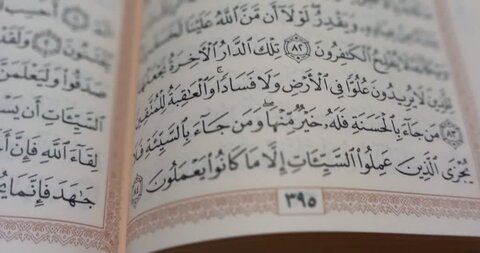 وَيَقْدِرُ لَوْلَآ أَن مَّنَّ ٱللَّهُ عَلَيْنَا
يُفْلِحُ ٱلْكَٰفِرُونَ ٨٢ تِلْكَ ٱلدَّارُ ٱلْأٓخِرَةُ نَجْعَلُهَا
لِلَّذِينَ لَا يُرِيدُونَ عُلُوًّا فِى ٱلْأَرْضِ وَلَا فَسَادًا ۚ وَٱلْعَٰقِبَةُ لِلْمُتَّقِينَ
٨٣ مَن جَآءَ بِٱلْحَسَنَةِ فَلَهُۥ خَيْرٌ مِّنْهَا ۖ وَمَن جَآءَ بِٱلسَّيِّئَةِ فَلَا
يُجْزَى ٱلَّذِينَ عَمِلُوا۟ ٱلسَّيِّـَٔاتِ إِلَّا مَا كَانُوا۟ يَعْمَلُونَ ٨٤
٣٩٥
يُفْتَنُونَ ٢ وَلَقَدْ
صَدَقُوا۟ وَلَيَعْلَمَنَّ
ٱلسَّيِّـَٔاتِ أَن
لِقَآءَ ٱللَّهِ فَإِنَّ
جَٰهَدَ فَإِنَّمَا